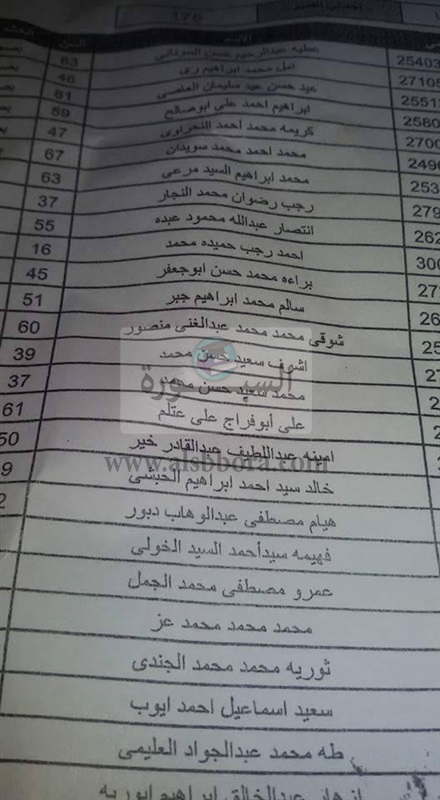 إجمالي القسم 178
السن الاسم
25403 عطيه عبدالرحيم حسن السودانى 63
27105 امل محمد ابراهيم رى 46
2551 عيد حسن عيد سليمان 61
2580 ابراهيم احمد على ابوصالح 59
2700 كريمه محمد أحمد النحراوى 47
2490 محمد احمد محمد سويدان 67
253 محمد ابراهيم السيد مرعى 63
279 رجب رضوان محمد النجار 37
262 انتصار عبدالله محمود عبده 55
300 احمد رجب حميده محمد 16
27 براءه محمد حسن ابوجعفر 45
26 سالم محمد ابراهيم جبر 51
25 شوقى محمد محمد عبدالغنى منصور 60
اشرف سعيد حسن محمد 39
محمد سعيد حسن محمد 37
على أبوفراج على علام 61
امينه عبداللطيف عبدالقادر خير 50
خالد سيد احمد ابراهيم الحبشى 9
هيام مصطفى عبدالوهاب دبور 2
فهيمه سيدأحمد السيد الخولى
عمرو مصطفى محمد الجمل
محمد محمد محمد عز
ثوريه محمد محمد الجندى
سعيد اسماعيل احمد ايوب
طه محمد عبدالجواد العليمى
عبدالخالق ابراهيم ابوريه
السبورة
www.alsbbora.com